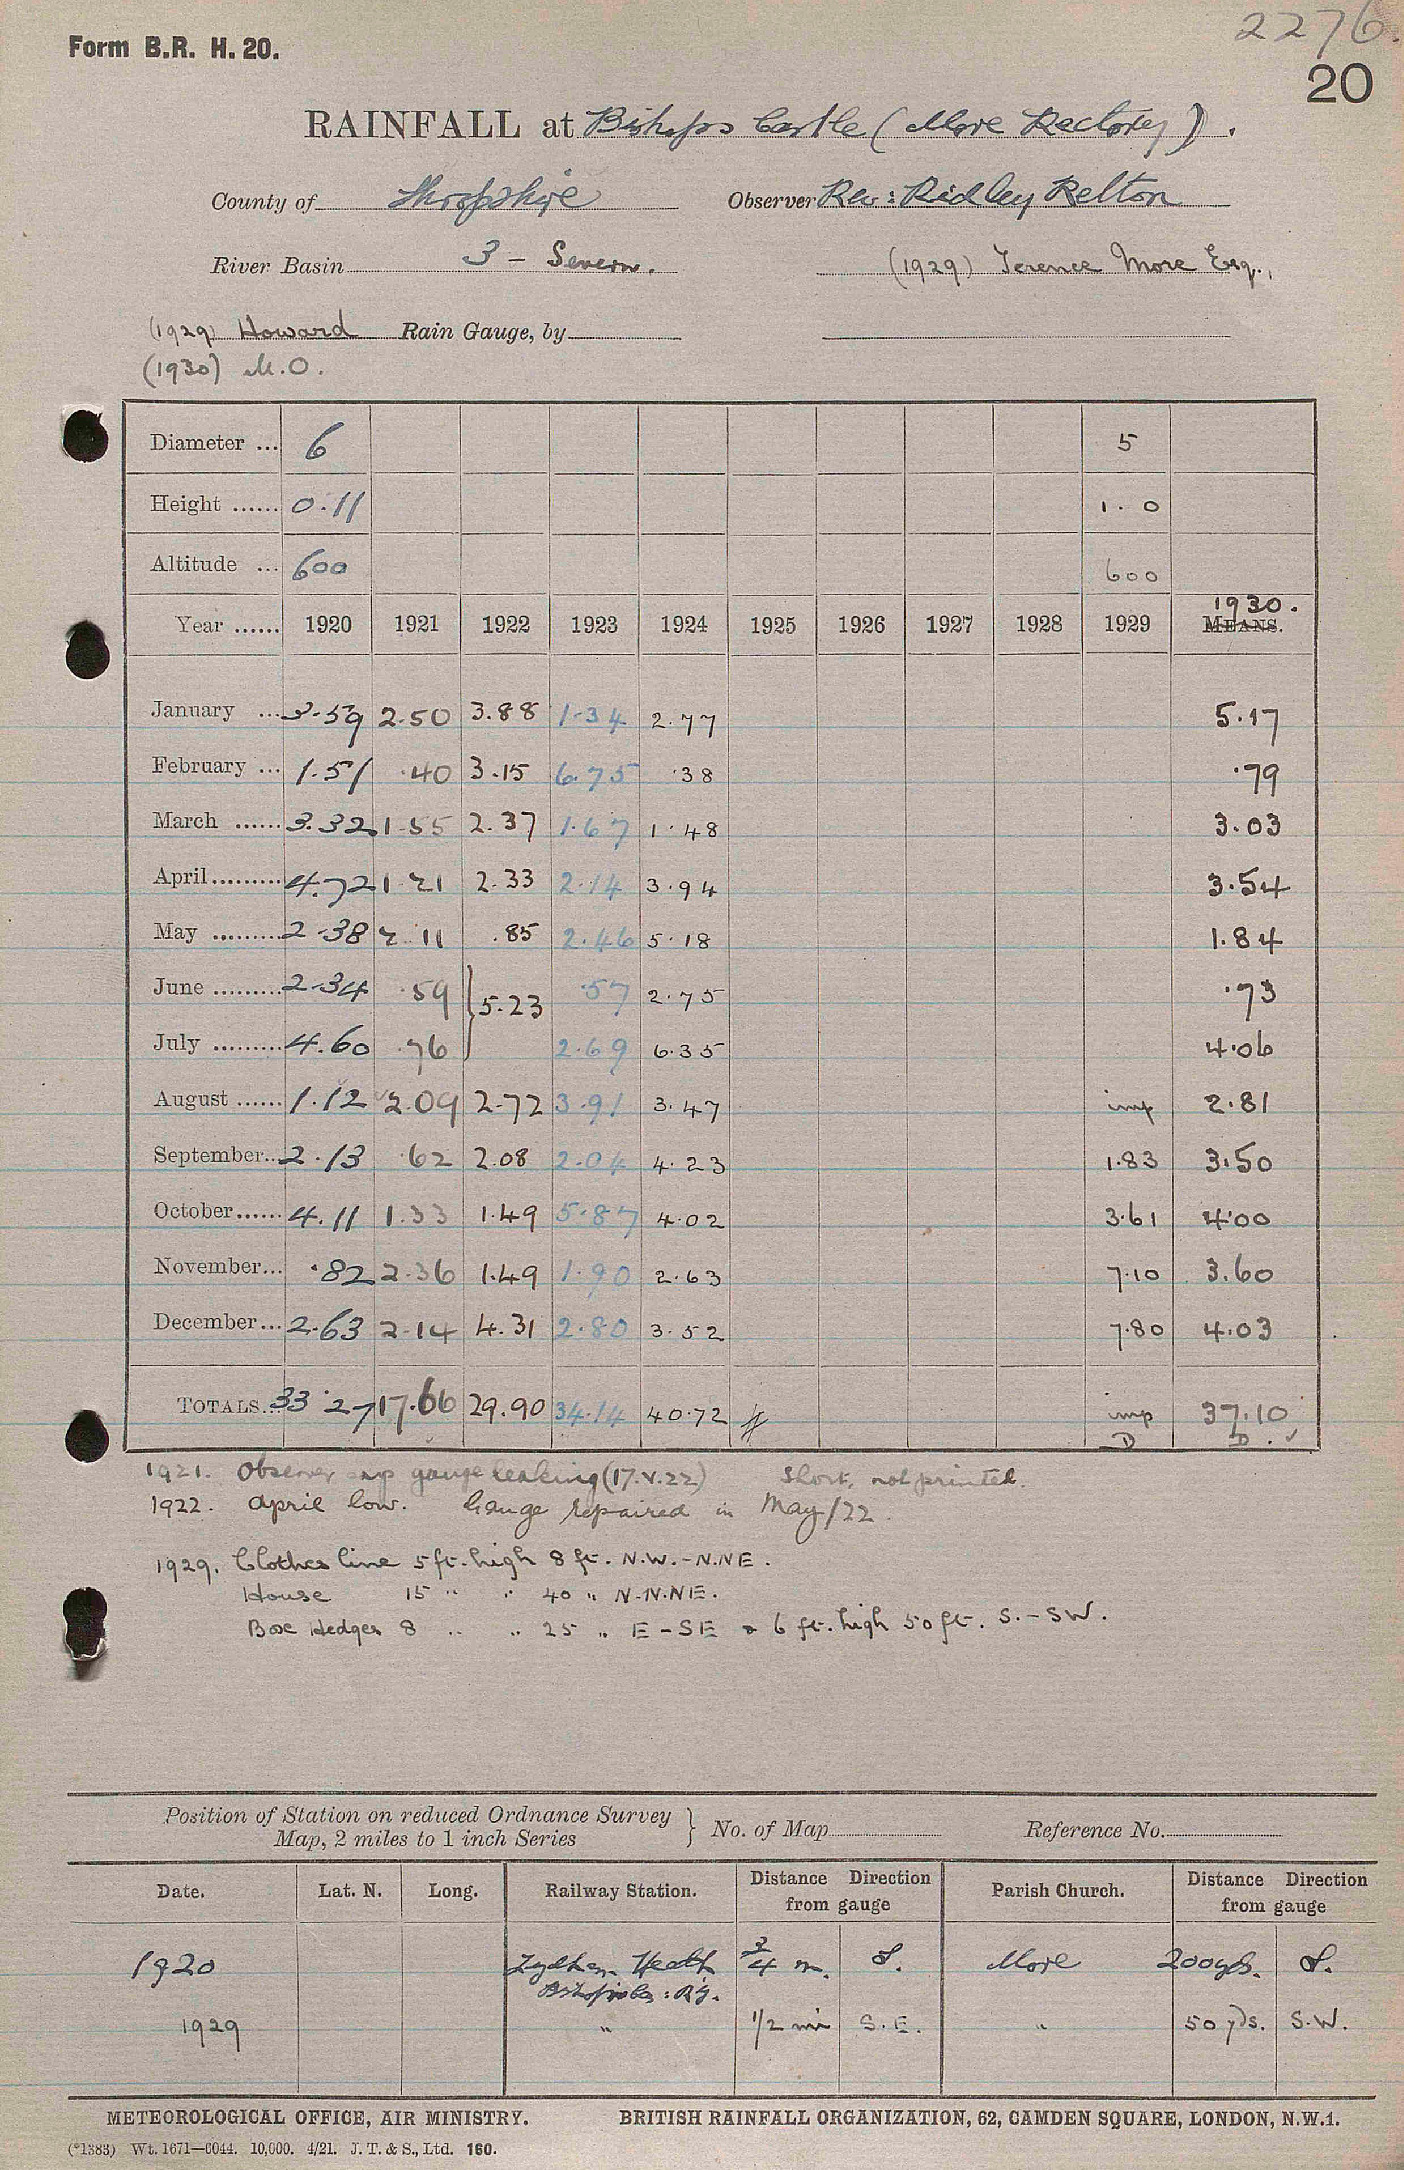 2276.
Form B.R. H. 20.
20
RAINFALL at Bishops Castle (More Rectory).
County of Shropshire Observer Rev: Ridley Relton
River Basin 3 - Severn. (1929) Terence More Esq.,
(1929) Howard Rain Gauge, by
(1930) M.O.
Diameter ... 6 5
Height ...... 0.11 1.0
Altitude ... 600 600
Year ...... 1920 1921 1922 1923 1924 1925 1926 1927 1928 1929 1930. MEANS.
January ... 3.59 2.50 3.88 1.34 2.77 5.17
February ... 1.51 .40 3.15 6.75 .38 .79
March ...... 3.32 1.55 2.37 1.67 1.48 3.03
April ......... 4.72 1.21 2.33 2.14 3.94 3.54
May ......... 2.38 2.11 .85 2.46 5.18 1.84
June ......... 2.34 .59 } 5.23 .57 2.75 .73
July ......... 4.60 .76 2.69 6.35 4.06
August ...... 1.12 2.09 2.72 3.91 3.47 imp 2.81
September... 2.13 .62 2.08 2.04 4.23 1.83 3.50
October...... 4.11 1.33 1.49 5.87 4.02 3.61 4.00
November... .82 2.36 1.49 1.90 2.63 7.10 3.60
December... 2.63 2.14 4.31 2.80 3.52 7.80 4.03
TOTALS... 33.27 17.66 29.90 34.14 40.72 imp 37.10
D D. ✓
1921. Observer says gauge leaking (17.V.22) Short, not printed.
1922. April low. Gauge repaired in May/22.
1929. Clothes line 5 ft. high 8 ft. N.W.-N.NE.
House 15 " " 40 " N-N.NE.
Box Hedges 8 " " 25 " E - SE & 6 ft. high 50 ft. S. - SW.
Position of Station on reduced Ordnance Survey
Map, 2 miles to 1 inch Series } No. of Map Reference No.
Date. Lat. N. Long. Railway Station. Distance Direction from gauge Parish Church. Distance Direction from gauge
1920 Lydham Heath 3/4 m. S. More 200 yds. S.
Bishops Cas: Ry.
1929 " 1/2 mi S.E. " 50 yds. S.W.
METEOROLOGICAL OFFICE, AIR MINISTRY. BRITISH RAINFALL ORGANIZATION, 62, CAMDEN SQUARE, LONDON, N.W.1.
(*1383) Wt. 1671—6044. 10,000. 4/21. J. T. & S., Ltd. 160.